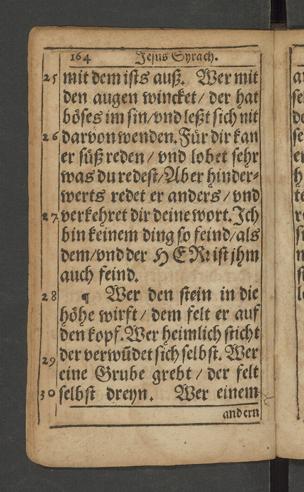 164 Jesus Syrach.
25 mit dem ists auß. Wer mit
den augen wincket / der hat
böses im sin / vnd leßt sich nit
26 darvon wenden. Für dir kan
er süß reden / vnd lobet sehr
was du redest / Aber hinder-
werts redet er anders / vnd
27 verkehret dir deine wort. Ich
bin keinem ding so feind / als
dem / vnd der HERr ist jhm
auch feind.
28 ¶ Wer den stein in die
höhe wirft / dem felt er auf
den kopf. Wer heimlich sticht
29 der verwūdet sich selbst. Wer
eine Grube grebt / der felt
30 selbst dreyn. Wer einem
andern